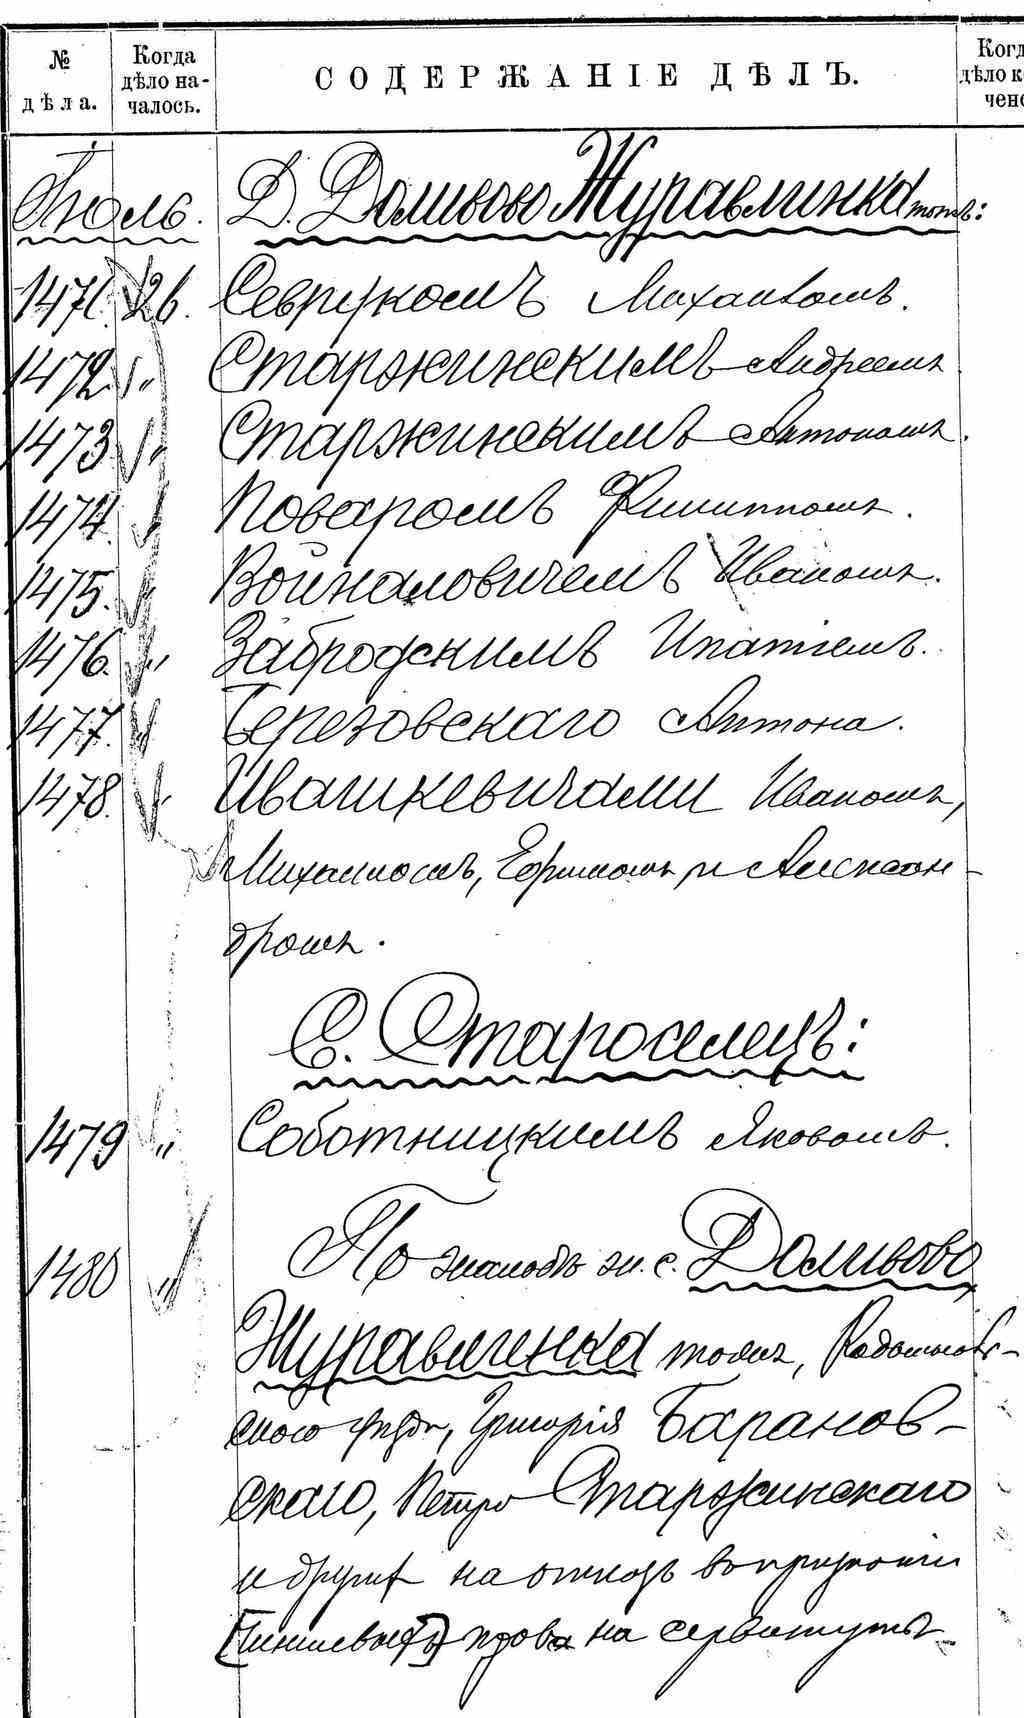 № дѣла. Когда дѣло на- чалось. СОДЕРЖАНІЕ ДѢЛЪ. Когд дѣло к чено
Іюль. Д. Доливово Журавлинка тожъ:
1471. 26. Севрукомъ Михаиломъ.
1472 " Старжинскимъ Андреемъ
1473 " Старжинскимъ Антономъ.
1474 " Поваромъ Филиппомъ.
1475. " Войналовичемъ Иваномъ.
1476. " Забродскимъ Ипатіемъ.
1477. " Березовскаго Антона.
1478. " Ивашкевичами Иваномъ,
Михаиломъ, Ефимомъ и Алексан-
дромъ.
С. Староселецъ:
1479 " Соботницкимъ Яковомъ.
1480 " По жалобѣ ж. с. Доливово
Журавлинка тожъ, Радомысль-
скаго уѣзда, Григорія Баранов-
скаго, Петра Старжинскаго
и друг. на отказъ въ признаніи
[чиншевыхъ] права на сервитутъ